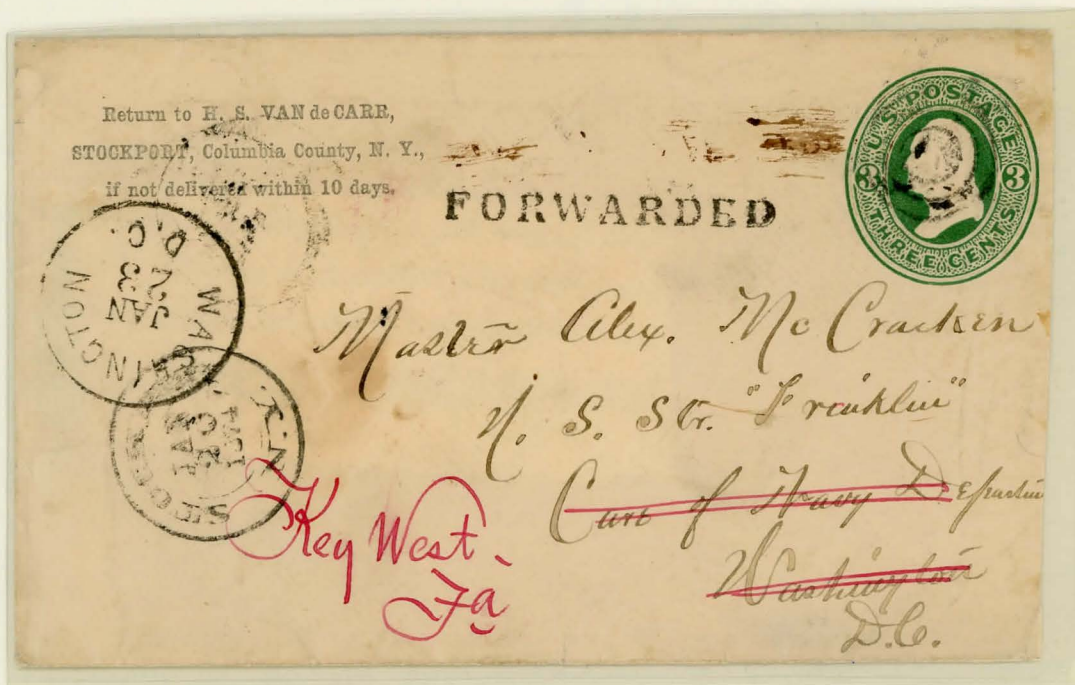 Return to H. S. VAN de CARR,
STOCKPORT, Columbia County, N. Y.,
if not delivered within 10 days.
FORWARDED
U.S. POSTAGE
3 3
THREE CENTS
WASHINGTON
D.C.
JAN
23
N.Y.
JAN
Master Alex. McCracken
U. S. Str. "Franklin"
Care of Navy Department
Washington
D.C.
Key West.
Fa